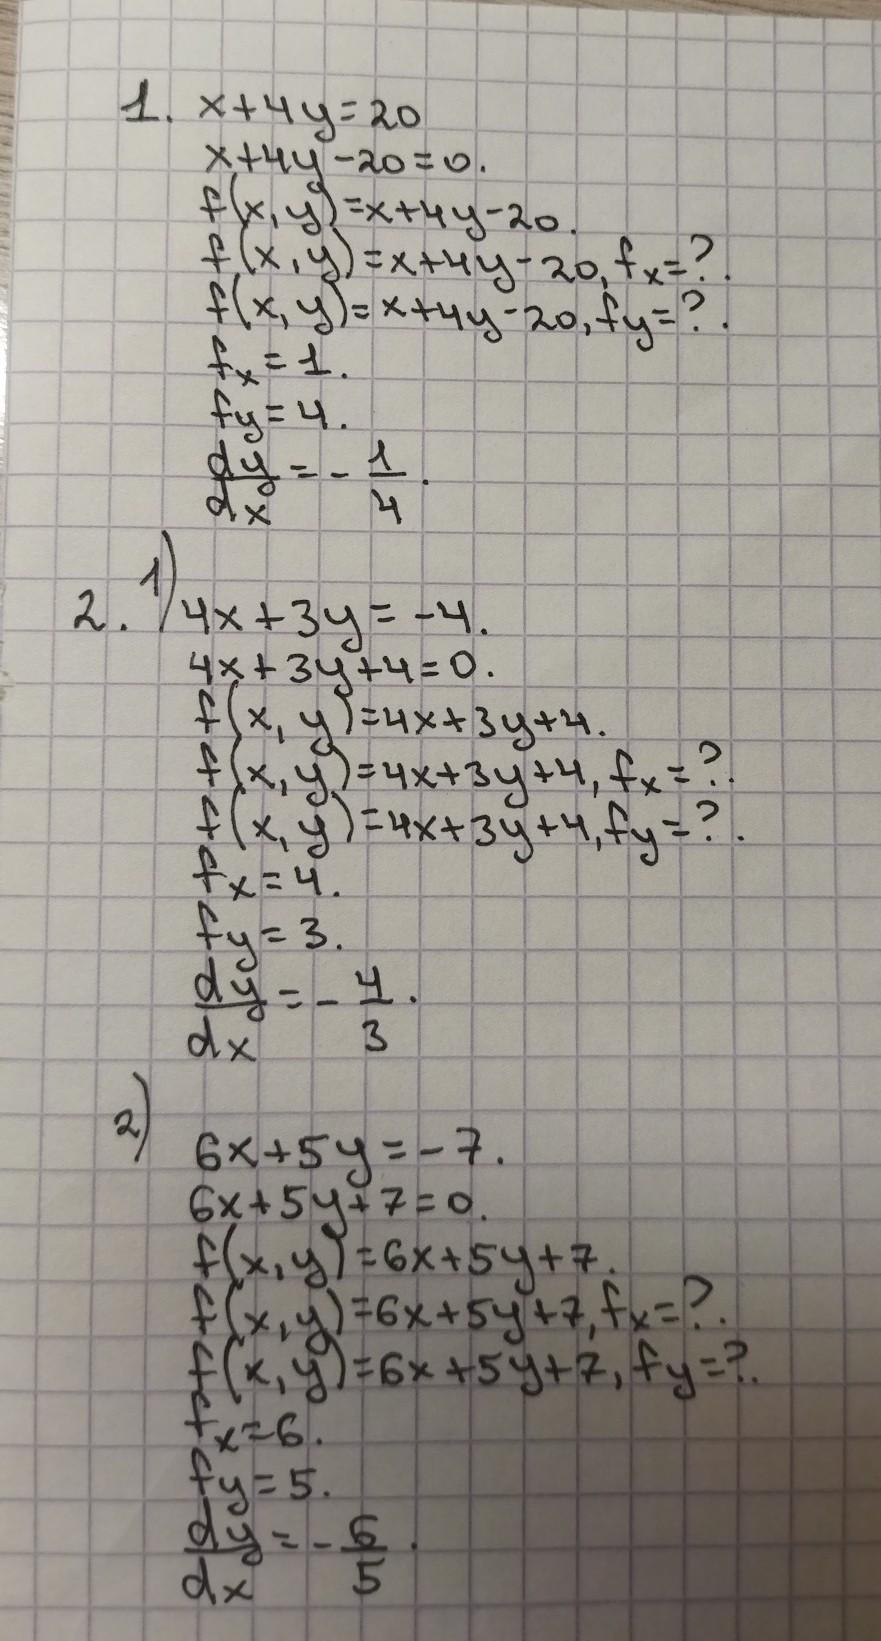 1. x+4y=20
x+4y-20=0.
f(x,y)=x+4y-20.
f(x,y)=x+4y-20, fx=?.
f(x,y)=x+4y-20, fy=?.
fx=1.
fy=4.
dy/dx=-1/4.
2. 1) 4x+3y=-4.
4x+3y+4=0.
f(x,y)=4x+3y+4.
f(x,y)=4x+3y+4, fx=?.
f(x,y)=4x+3y+4, fy=?.
fx=4.
fy=3.
dy/dx=-4/3.
2) 6x+5y=-7.
6x+5y+7=0.
f(x,y)=6x+5y+7.
f(x,y)=6x+5y+7, fx=?.
f(x,y)=6x+5y+7, fy=?.
fx=6.
fy=5.
dy/dx=-6/5.